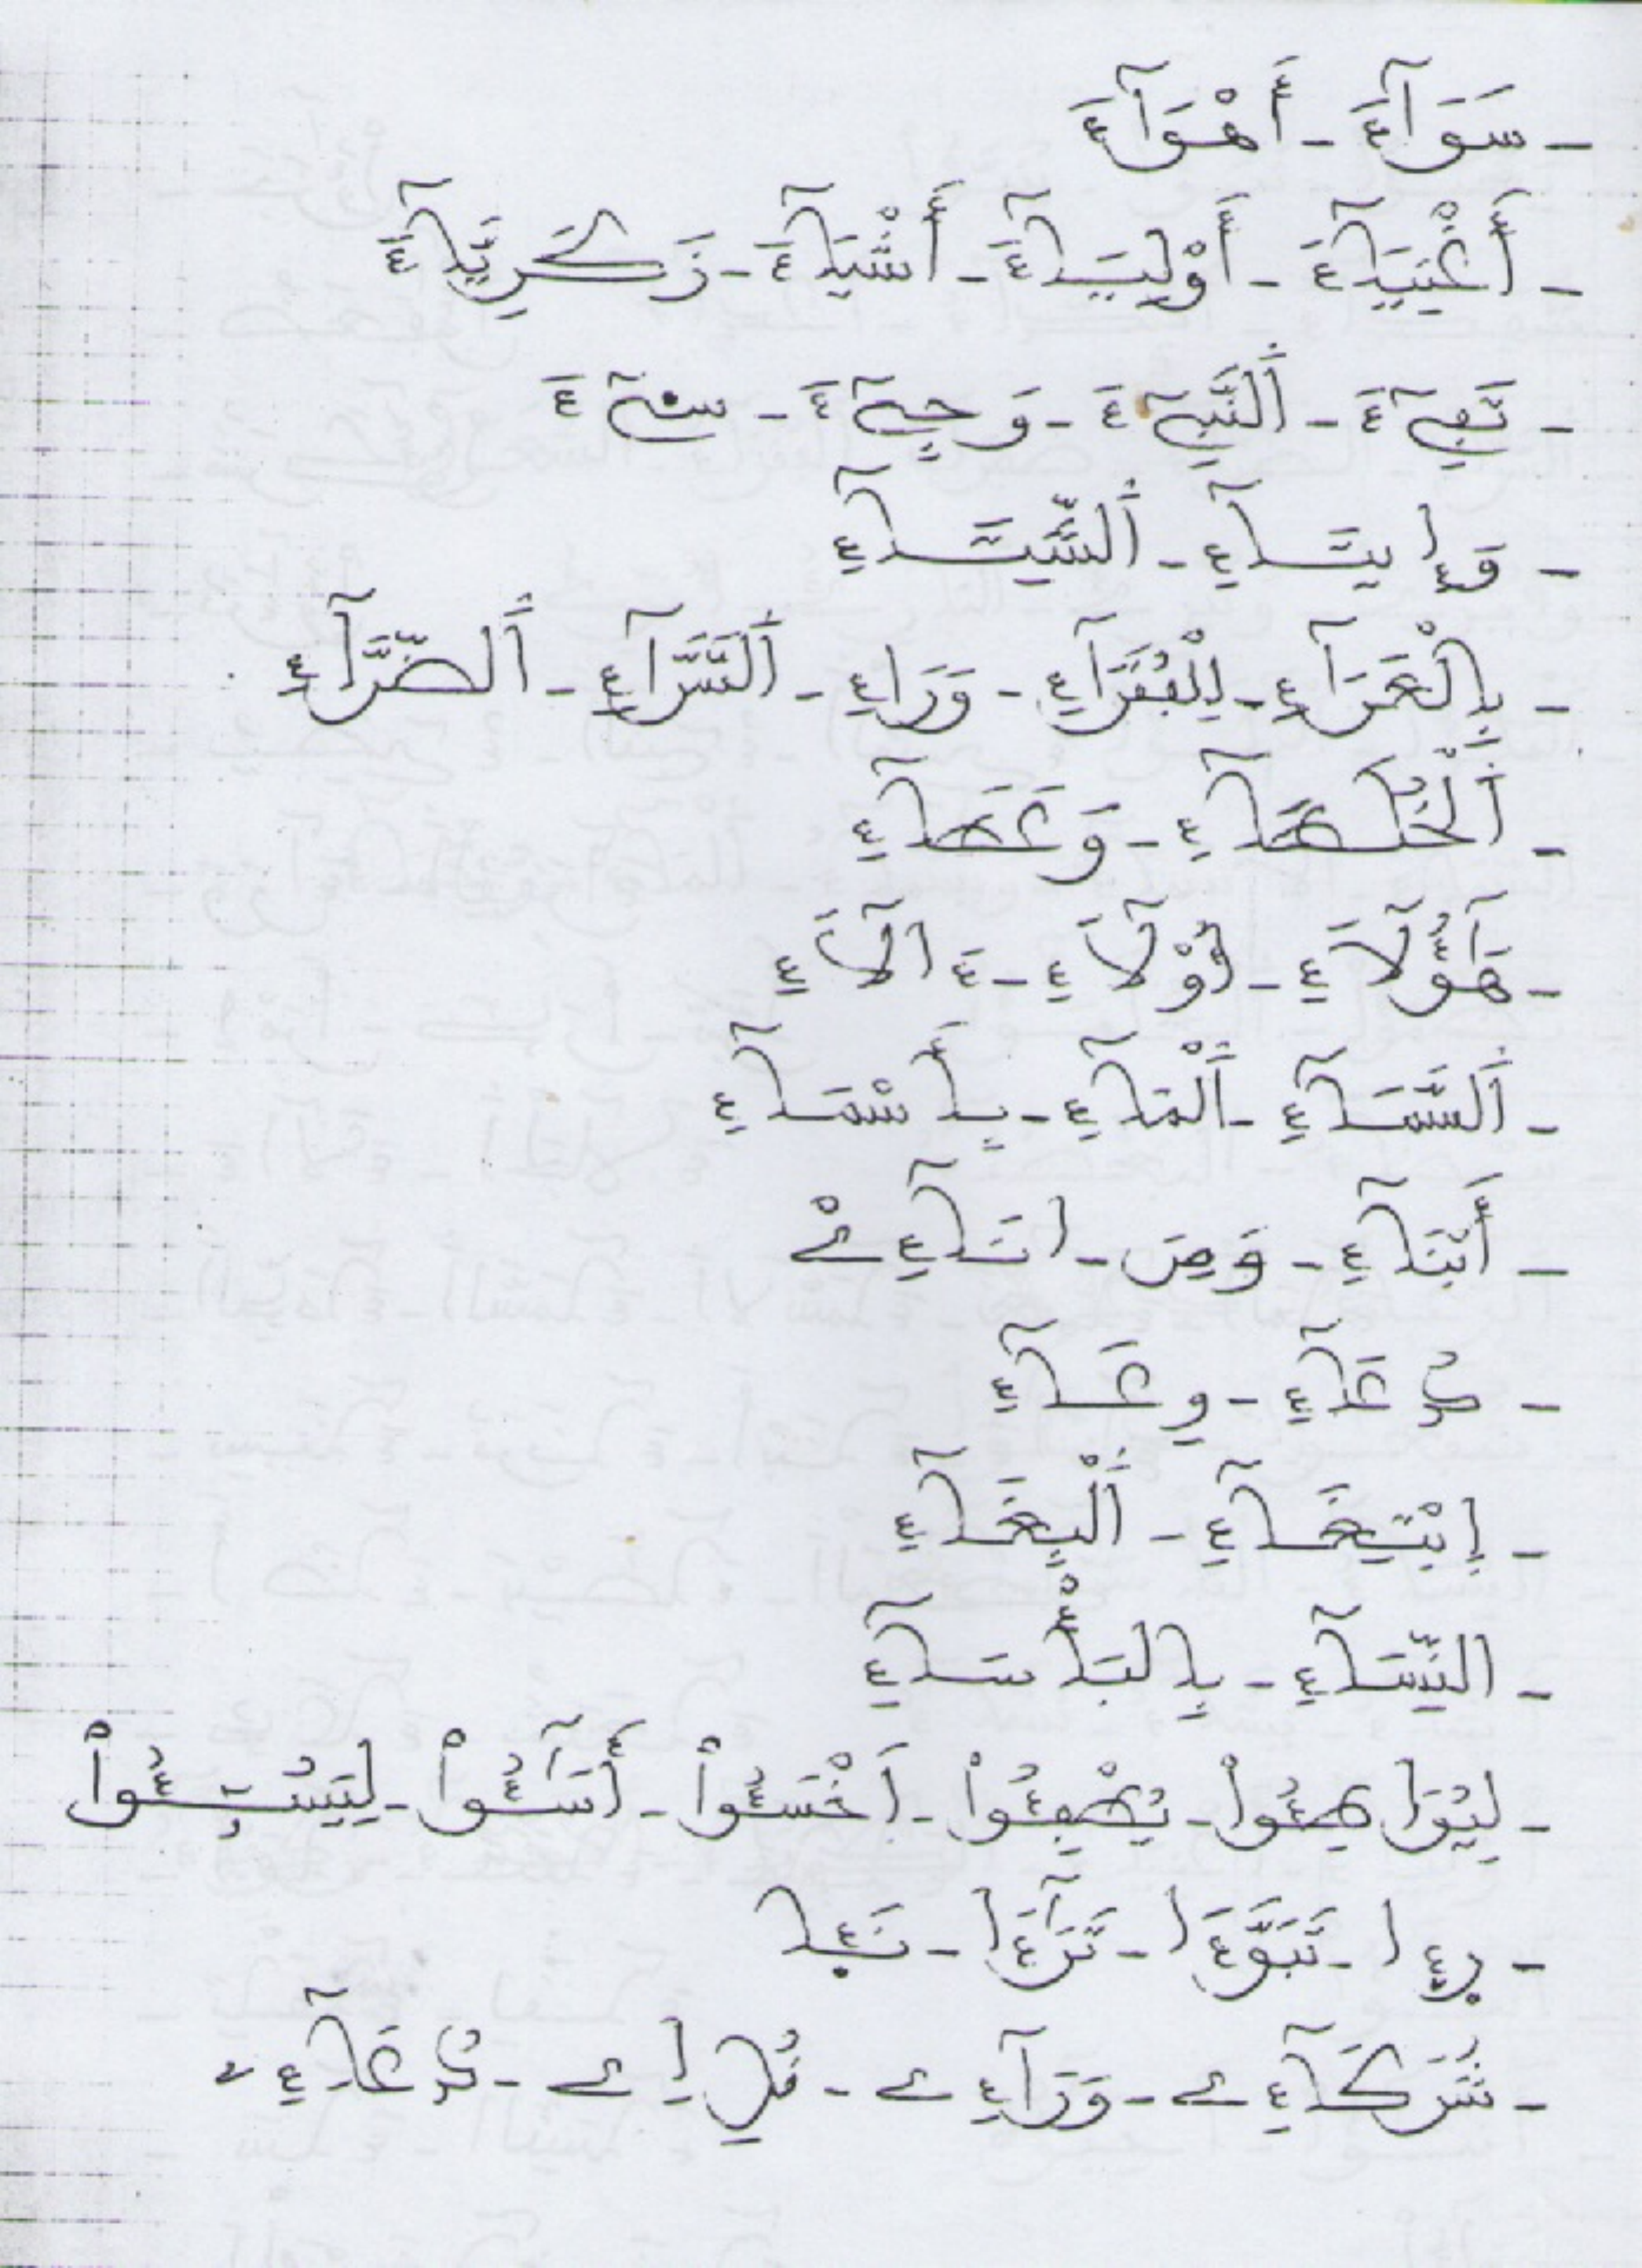 - سَوَآءَ - أَهْوَآءَ
- أَغْنِيَآءَ - أَوْلِيَآءَ - أَشْيَآءَ - زَكَرِيَّآءَ
- تَفِےٓءَ - اَلنَّبِےٓءَ - وَجِےْٓءَ - سِےٓءَ
- اَلنِّسَآءِ
- بِالْعَرَآءِ - لِلْفُقَرَآءِ - وَرَآءِ - اَلسَّرَّآءِ - اَلضَّرَّآءِ
- اَلْخُلَطَآءِ - وَعَطَآءِ
- هَٰٓؤُلَآءِ - أُوْلَآءِ - ءَالَآءِ
- اَلسَّمَآءِ - اَلْمَآءِ - بِأَسْمَآءِ
- أَبْنَآءِ - وَمِنَ - انَآءِےْ
- دُعَآءِ - وِعَآءِ
- اِبْتِغَآءِ - اَلْبِغَآءِ
- النِّسَآءِ - بِالبَأْسَآءِ
- لِيُوَاطِـُٔواْ - يُطْفِـُٔواْ - اَخْسَـُٔواْ - أَسَٰٓـُٔواْ - لِيَسُـُٔواْ
- تَبَوَّءَا - تَرَٰٓءَا - نَبَإِ
- شُرَكَآءِے - وَرَآءِے - دُعَآءِ